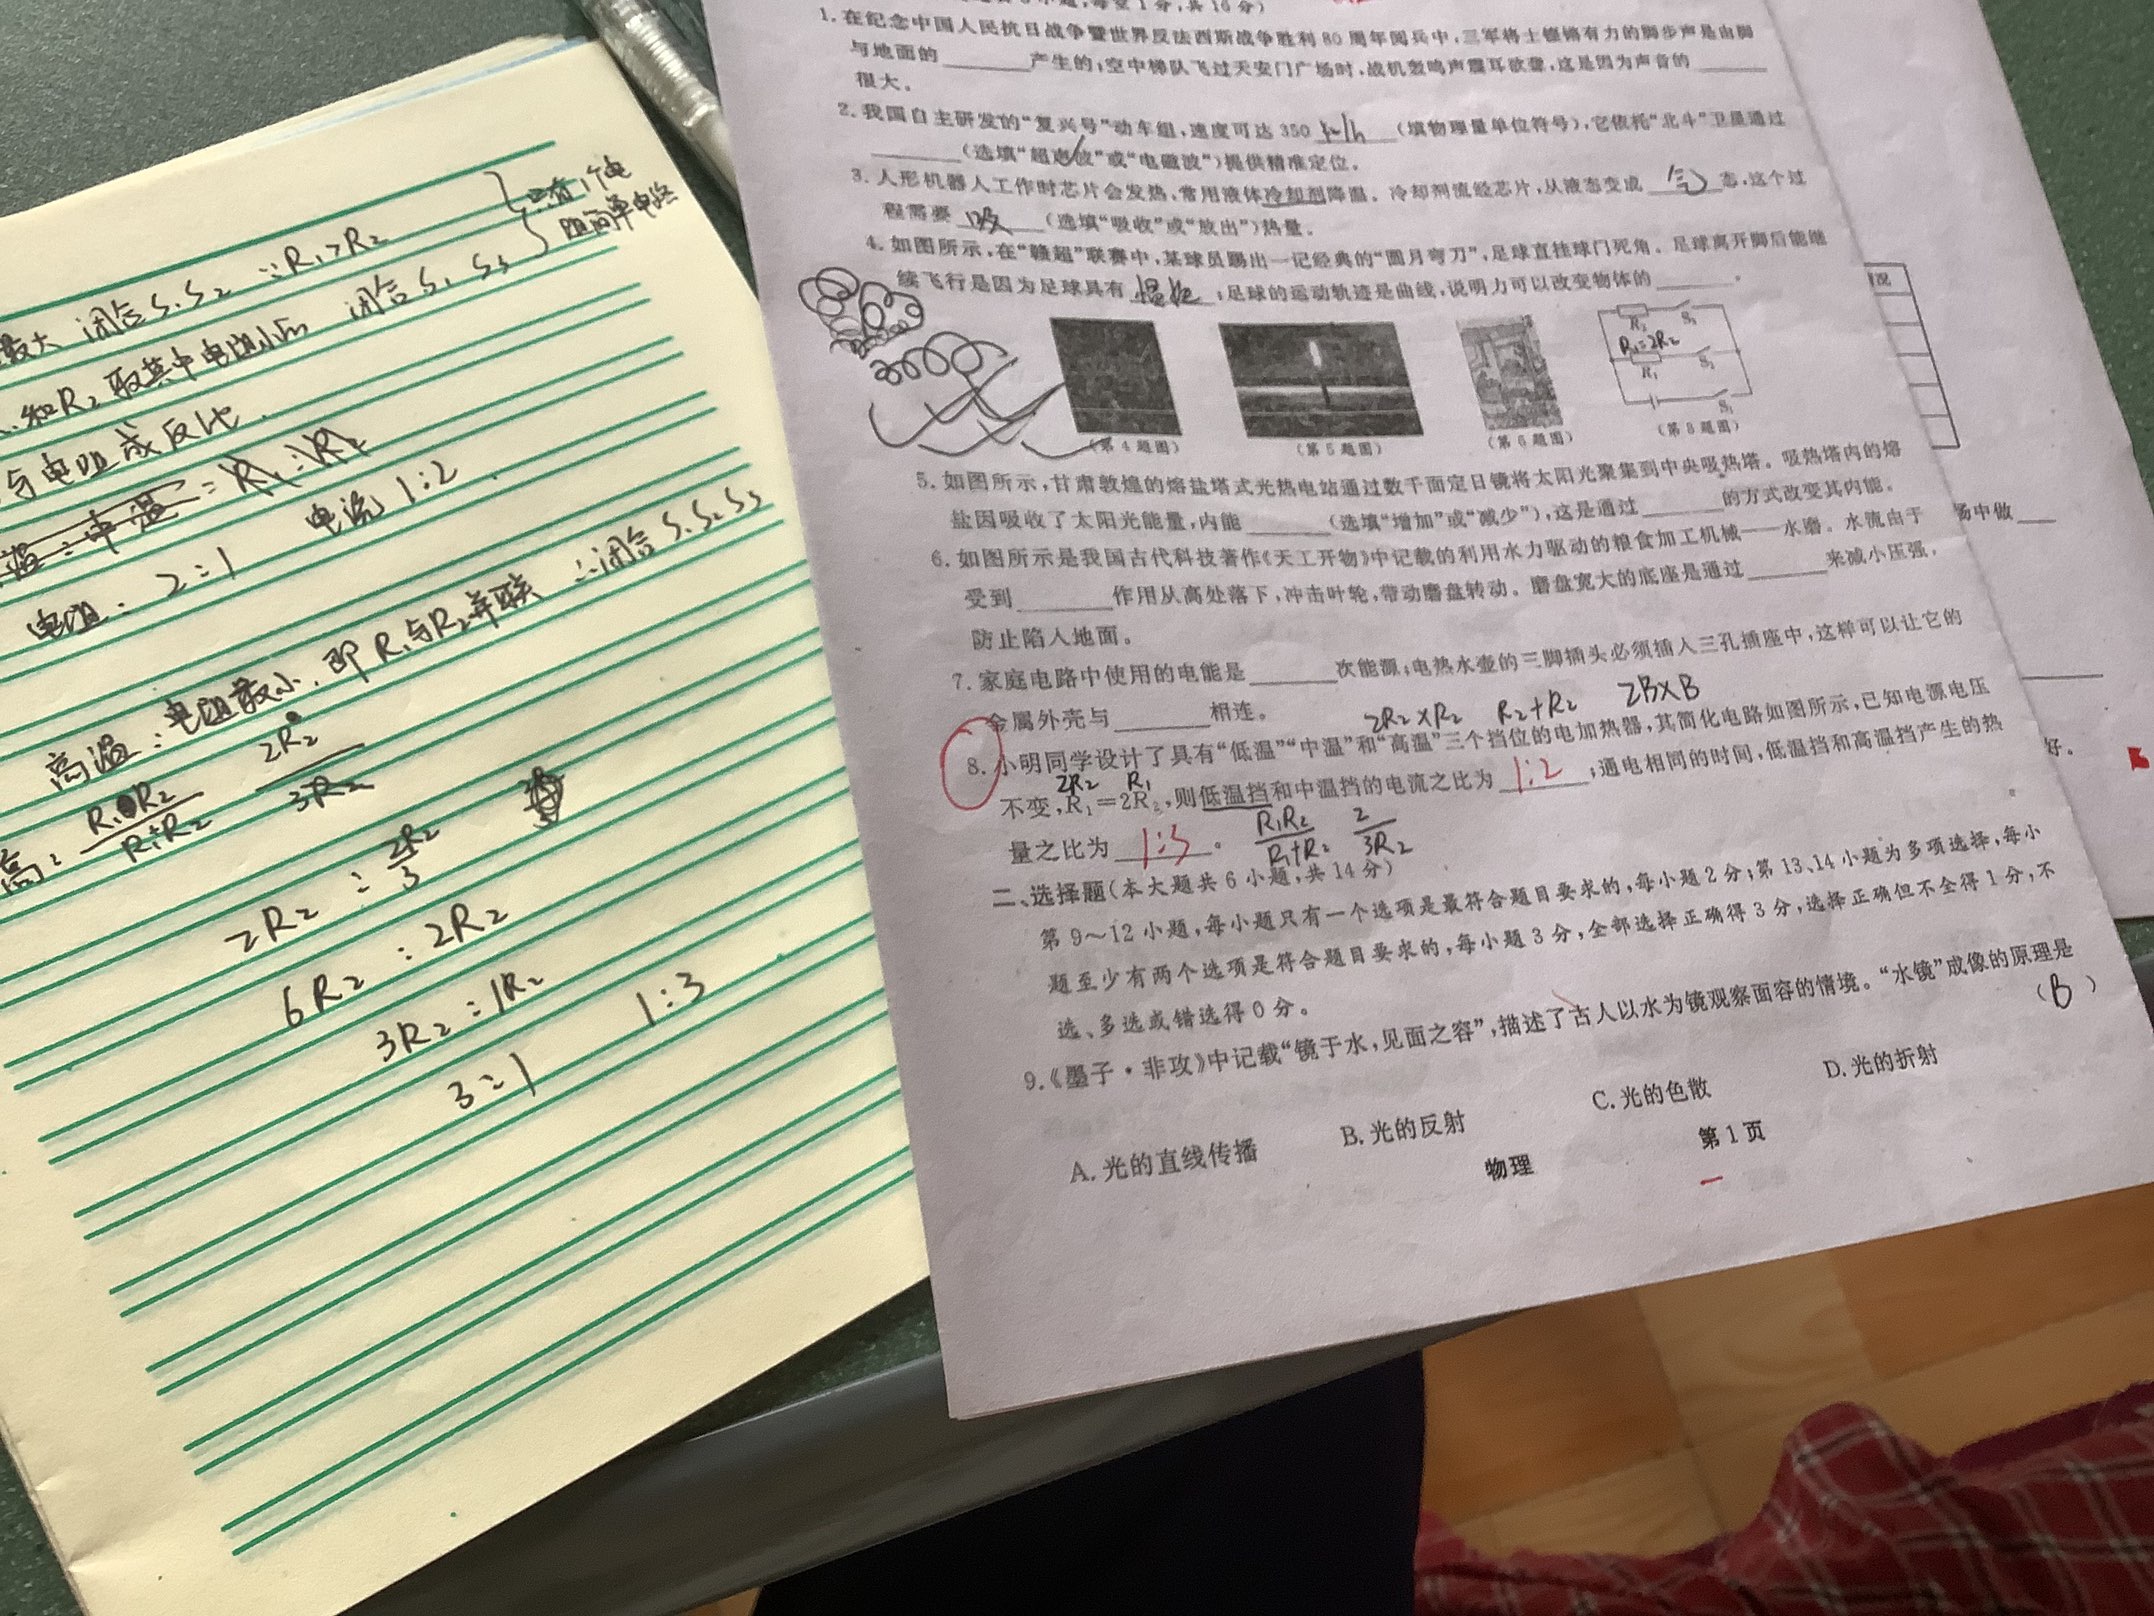 最大 闭合S₁S₂ ∵R₁>R₂
只有1个电
阻简单电路
和R₂取其中电阻小的 闭合S₁ S₃
与电阻成反比
电流 1:2
电阻: 2:1
高温: 电阻最小, 即R₁与R₂并联 ∴闭合S₁S₂S₃
高: R₁R₂/R₁+R₂ 2R₂²/3R₂
2R₂ : 2R₂/3
6R₂ : 2R₂
3R₂ : 1R₂
3:1 1:3
1.在纪念中国人民抗日战争暨世界反法西斯战争胜利80周年阅兵中,三军将士铿锵有力的脚步声是由脚
与地面的______产生的;空中梯队飞过天安门广场时,战机轰鸣声震耳欲聋,这是因为声音的______
很大。
2.我国自主研发的“复兴号”动车组,速度可达350 km/h (填物理量单位符号),它依托“北斗”卫星通过
______(选填“超声波”或“电磁波”)提供精准定位。
3.人形机器人工作时芯片会发热,常用液体冷却剂降温。冷却剂流经芯片,从液态变成 气 态,这个过
程需要 吸 (选填“吸收”或“放出”)热量。
4.如图所示,在“赣超”联赛中,某球员踢出一记经典的“圆月弯刀”,足球直挂球门死角。足球离开脚后能继
续飞行是因为足球具有 惯性 ;足球的运动轨迹是曲线,说明力可以改变物体的______。
R₂ S₃
R₁=2R₂
R₁ S₂
S₁
(第4题图) (第5题图) (第6题图) (第8题图)
5.如图所示,甘肃敦煌的熔盐塔式光热电站通过数千面定日镜将太阳光聚集到中央吸热塔。吸热塔内的熔
盐因吸收了太阳光能量,内能______(选填“增加”或“减少”),这是通过______的方式改变其内能。
6.如图所示是我国古代科技著作《天工开物》中记载的利用水力驱动的粮食加工机械——水磨。水流由于
受到______作用从高处落下,冲击叶轮,带动磨盘转动。磨盘宽大的底座是通过______来减小压强,
防止陷入地面。
7.家庭电路中使用的电能是______次能源;电热水壶的三脚插头必须插入三孔插座中,这样可以让它的
金属外壳与______相连。
2R₂×R₂ R₂+R₂ 2B×B
8.小明同学设计了具有“低温”“中温”和“高温”三个挡位的电加热器,其简化电路如图所示,已知电源电压
2R₂ R₁
不变,R₁=2R₂,则低温挡和中温挡的电流之比为 1:2 ;通电相同的时间,低温挡和高温挡产生的热
量之比为 1:3 。 R₁R₂/R₁+R₂ 2/3R₂
二、选择题(本大题共6小题,共14分)
第9~12小题,每小题只有一个选项是最符合题目要求的,每小题2分;第13、14小题为多项选择,每小
题至少有两个选项是符合题目要求的,每小题3分,全部选择正确得3分,选择正确但不全得1分,不
选、多选或错选得0分。
9.《墨子·非攻》中记载“镜于水,见面之容”,描述了古人以水为镜观察面容的情境。“水镜”成像的原理是
(B)
A.光的直线传播 B.光的反射 C.光的色散 D.光的折射
物理 第1页
况
场中做
好。